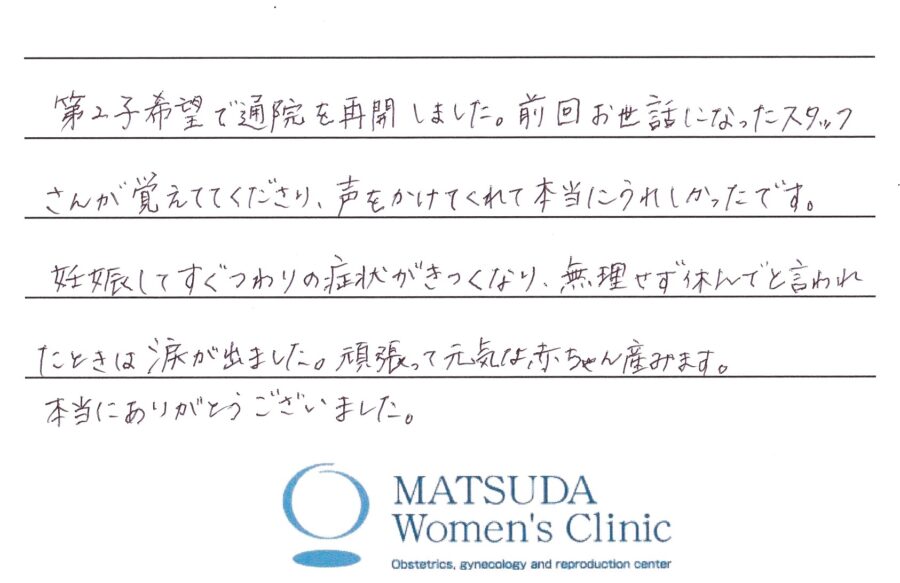 第2子希望で通院を再開しました。前回お世話になったスタッフ
さんが覚えててくださり、声をかけてくれて本当にうれしかったです。
妊娠してすぐつわりの症状がきつくなり、無理せず休んでと言われ
たときは涙が出ました。頑張って元気な赤ちゃん産みます。
本当にありがとうございました。
MATSUDA
Women's Clinic
Obstetrics, gynecology and reproduction center